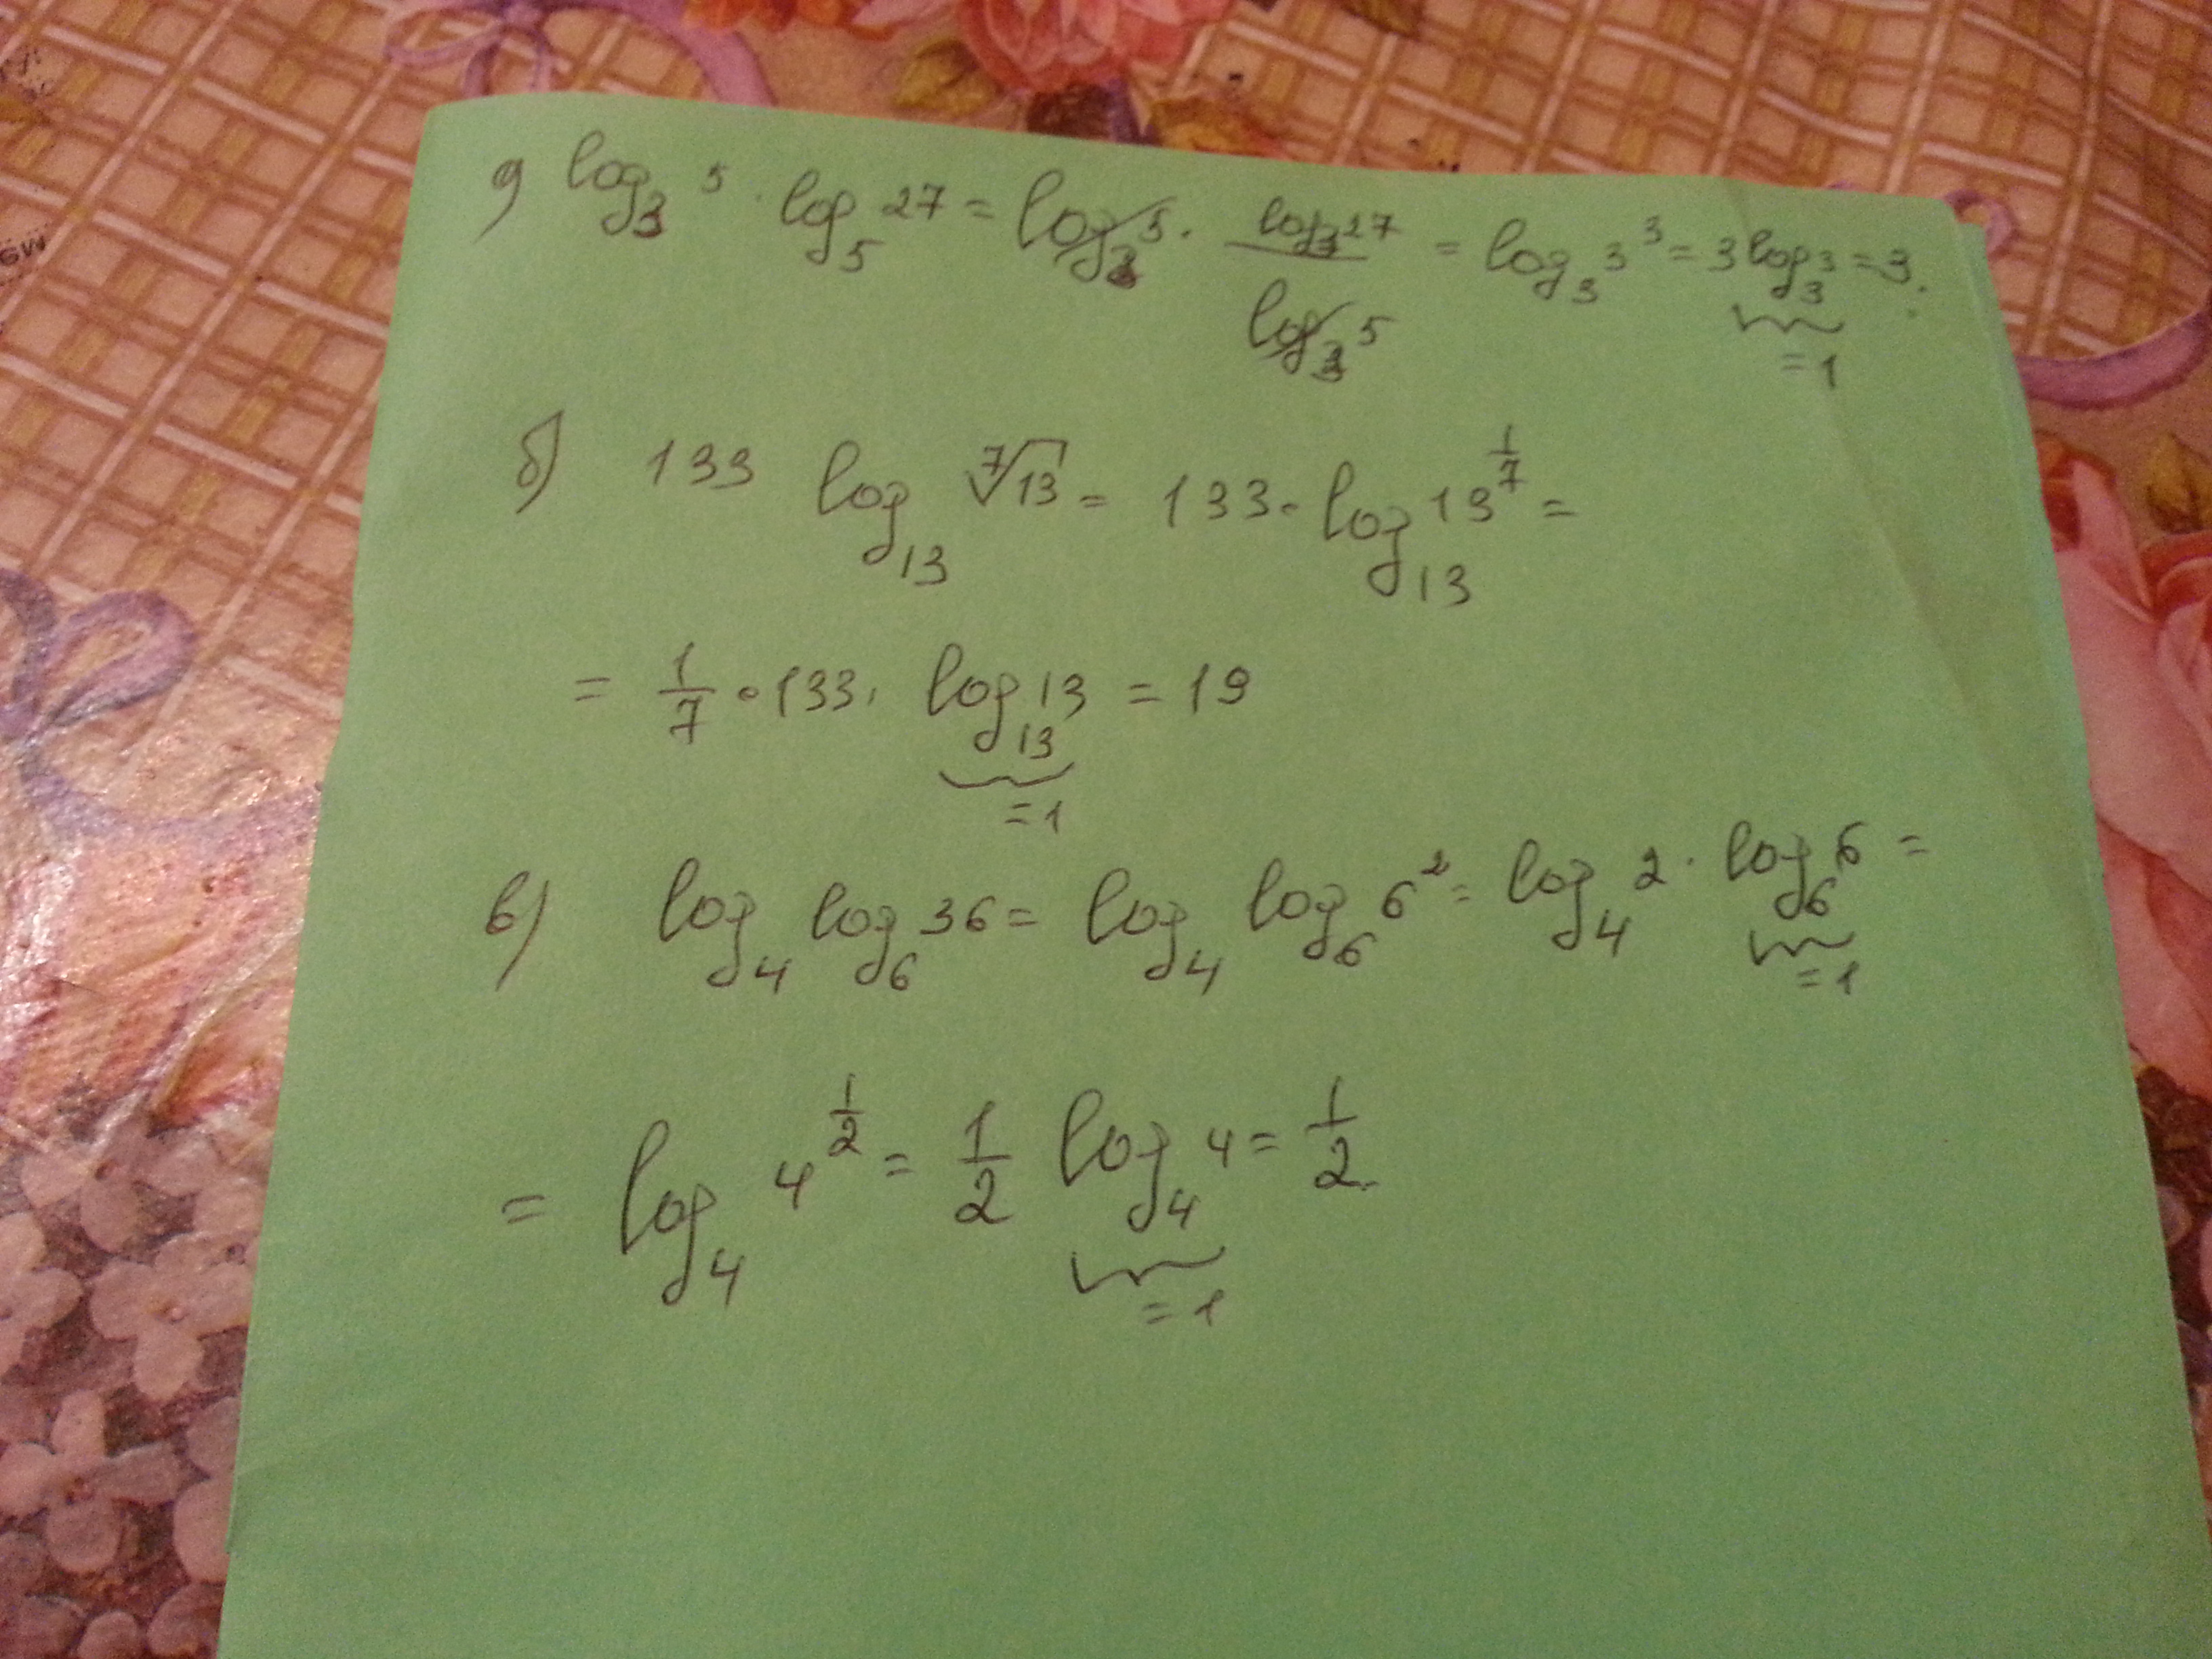 а) log₃ 5 · log₅ 27 = log₃ 5 · log₃ 27 / log₃ 5 = log₃ 3³ = 3 log₃ 3 = 3.
= 1
б) 133 log₁₃ ⁷√13 = 133 · log₁₃ 13^(1/7) =
= 1/7 · 133 · log₁₃ 13 = 19
= 1
в) log₄ log₆ 36 = log₄ log₆ 6² = log₄ 2 · log₆ 6 =
= 1
= log₄ 4^(1/2) = 1/2 log₄ 4 = 1/2.
= 1